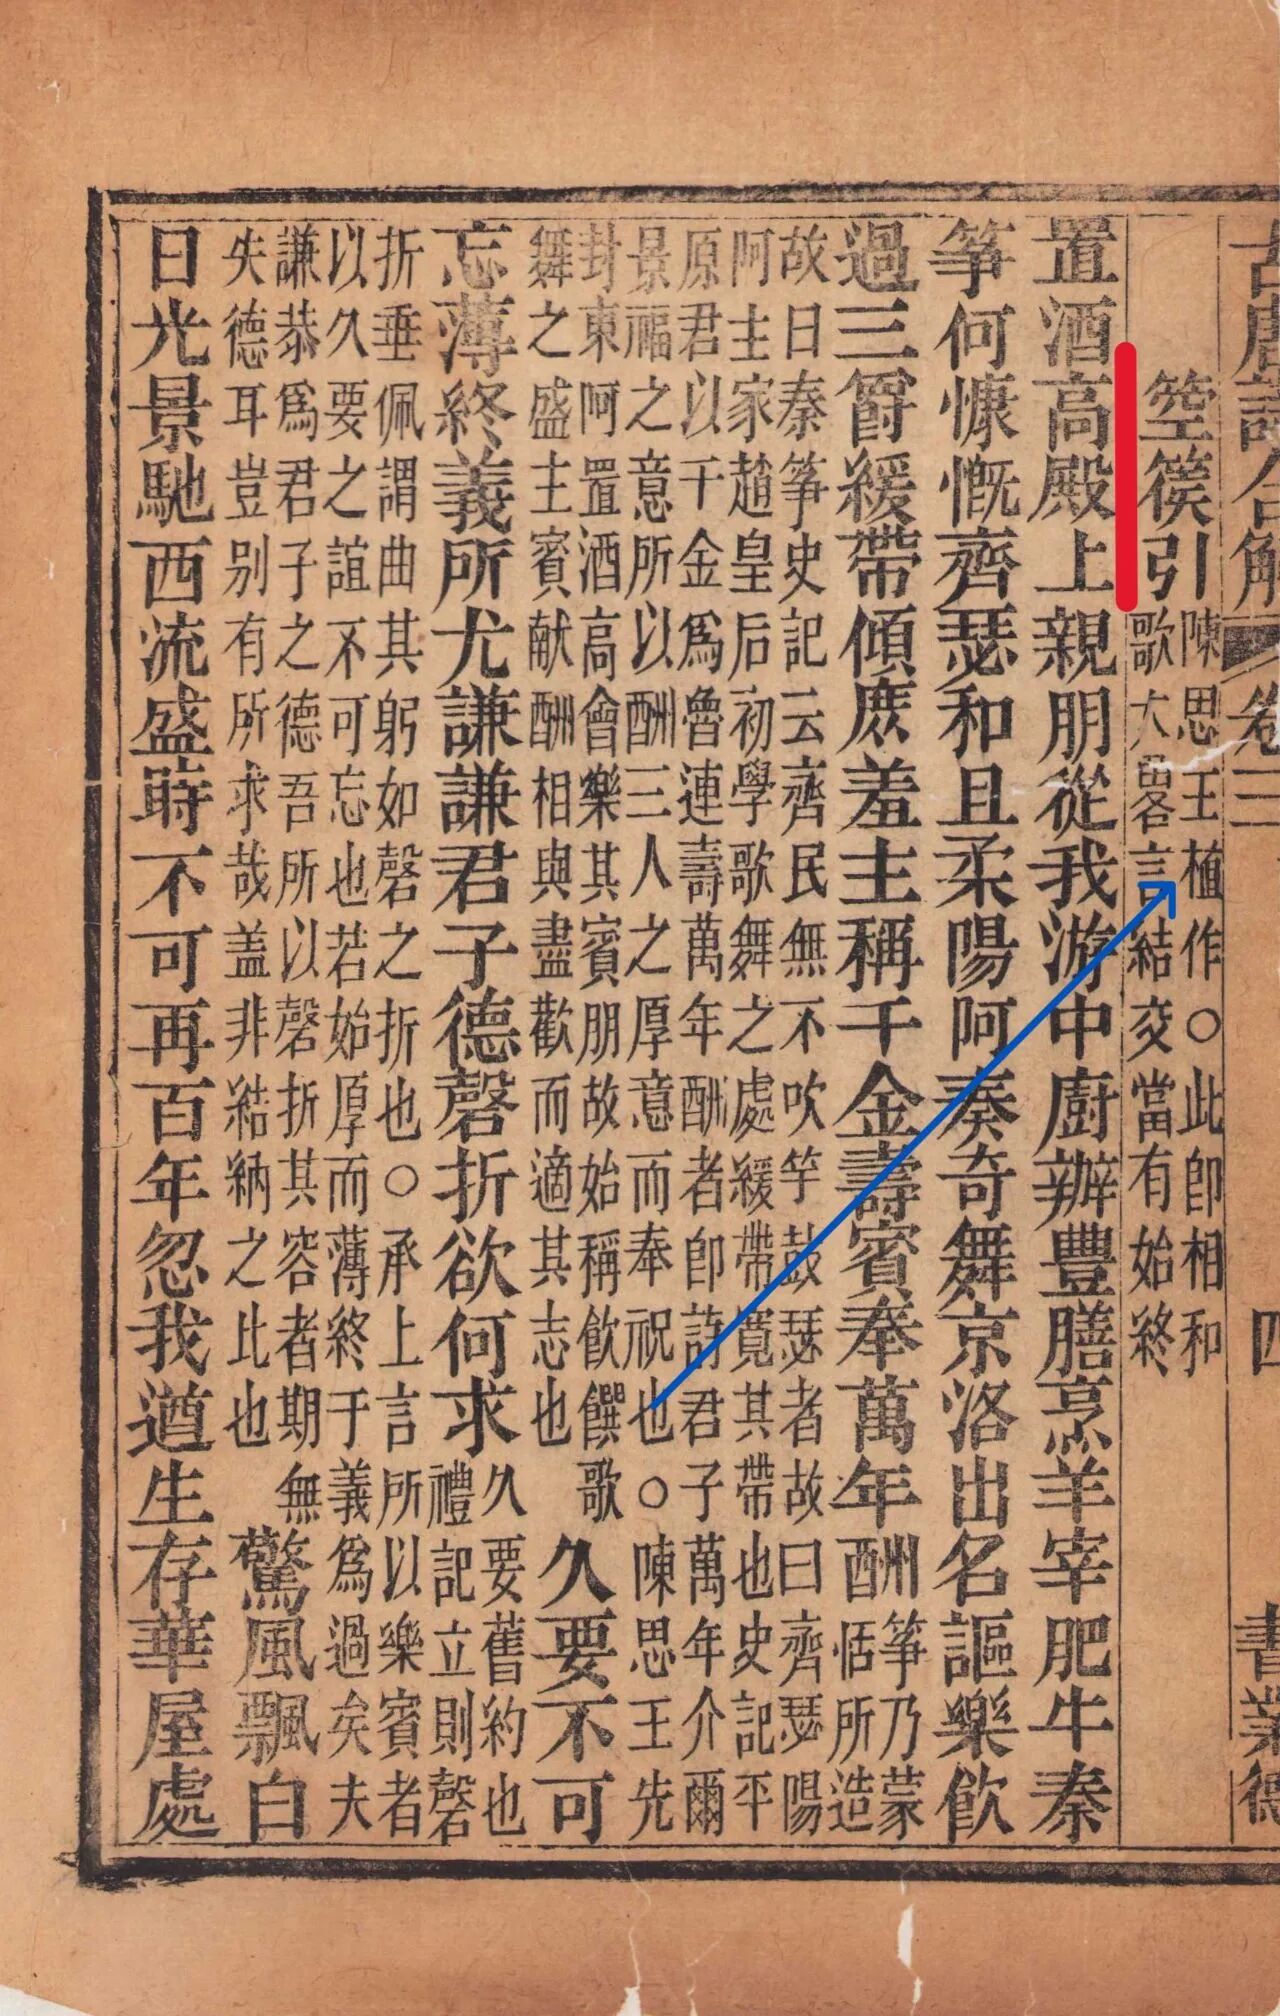 古唐詩合解 卷三 四 書業德
箜篌引 陳思王植作○此即相和
歌大畧言結交當有始終
置酒高殿上親朋從我游中廚辦豐膳烹羊宰肥牛秦
筝何慷慨齊瑟和且柔陽阿奏奇舞京洛出名謳樂飲
過三爵緩帶傾庶羞主稱千金壽賓奉萬年酬 筝乃蒙
恬所造
故曰秦筝史記云齊民無不吹竽鼓瑟者故曰齊瑟陽
阿主家趙皇后初學歌舞之處緩帶寬其帶也史記平
原君以千金爲魯連壽萬年酬者即詩君子萬年介爾
景福之意所以酬三人之厚意而奉祝也○陳思王先
封東阿置酒高會樂其賓朋故始稱飲饌歌
舞之盛主賓献酬相與盡歡而適其志也
久要不可
忘薄終義所尤謙謙君子德磬折欲何求 久要舊約也
禮記立則磬
折垂佩謂曲其躬如磬之折也○承上言所以樂賓者
以久要之誼不可忘也若始厚而薄終于義爲過矣夫
謙恭爲君子之德吾所以磬折其容者期無
失德耳豈别有所求哉盖非結納之此也
驚風飄白
日光景馳西流盛時不可再百年忽我遒生存華屋處